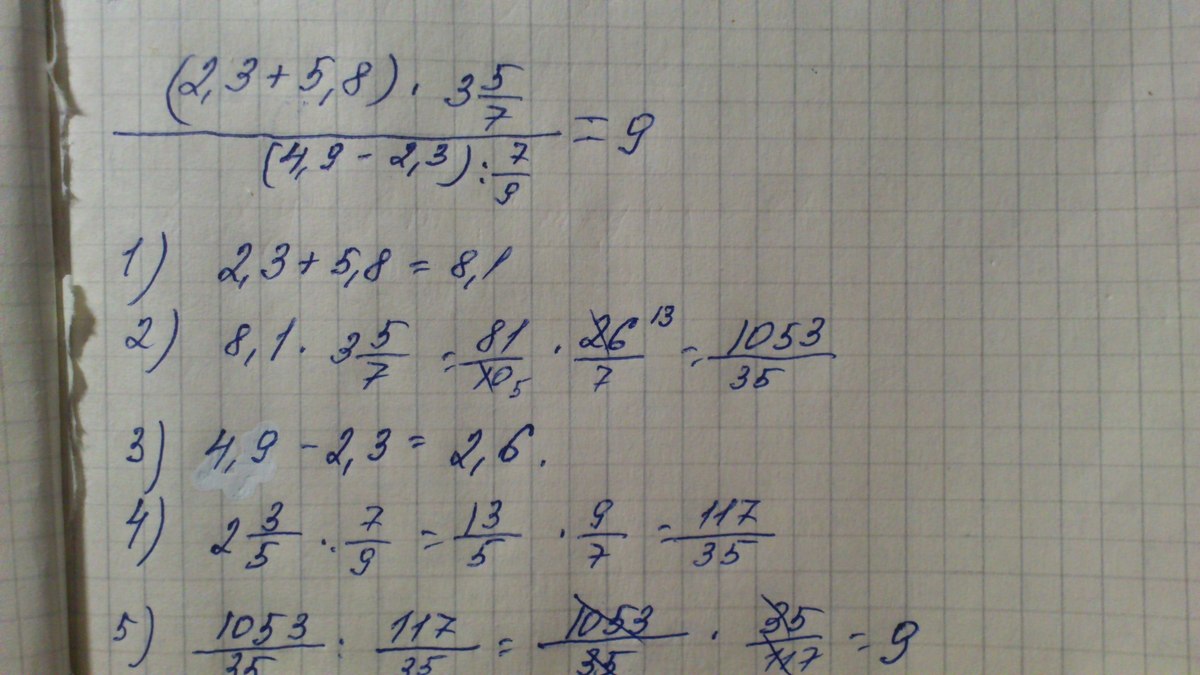 (2,3 + 5,8) · 3 5/7
(4,9 - 2,3) : 7/9
= 9
1) 2,3 + 5,8 = 8,1
2) 8,1 · 3 5/7 = 81/10 5 · 26 13/7 = 1053/35
3) 4,9 - 2,3 = 2,6.
4) 2 3/5 : 7/9 = 13/5 · 9/7 = 117/35
5) 1053/35 : 117/35 = 1053/35 · 35/117 = 9